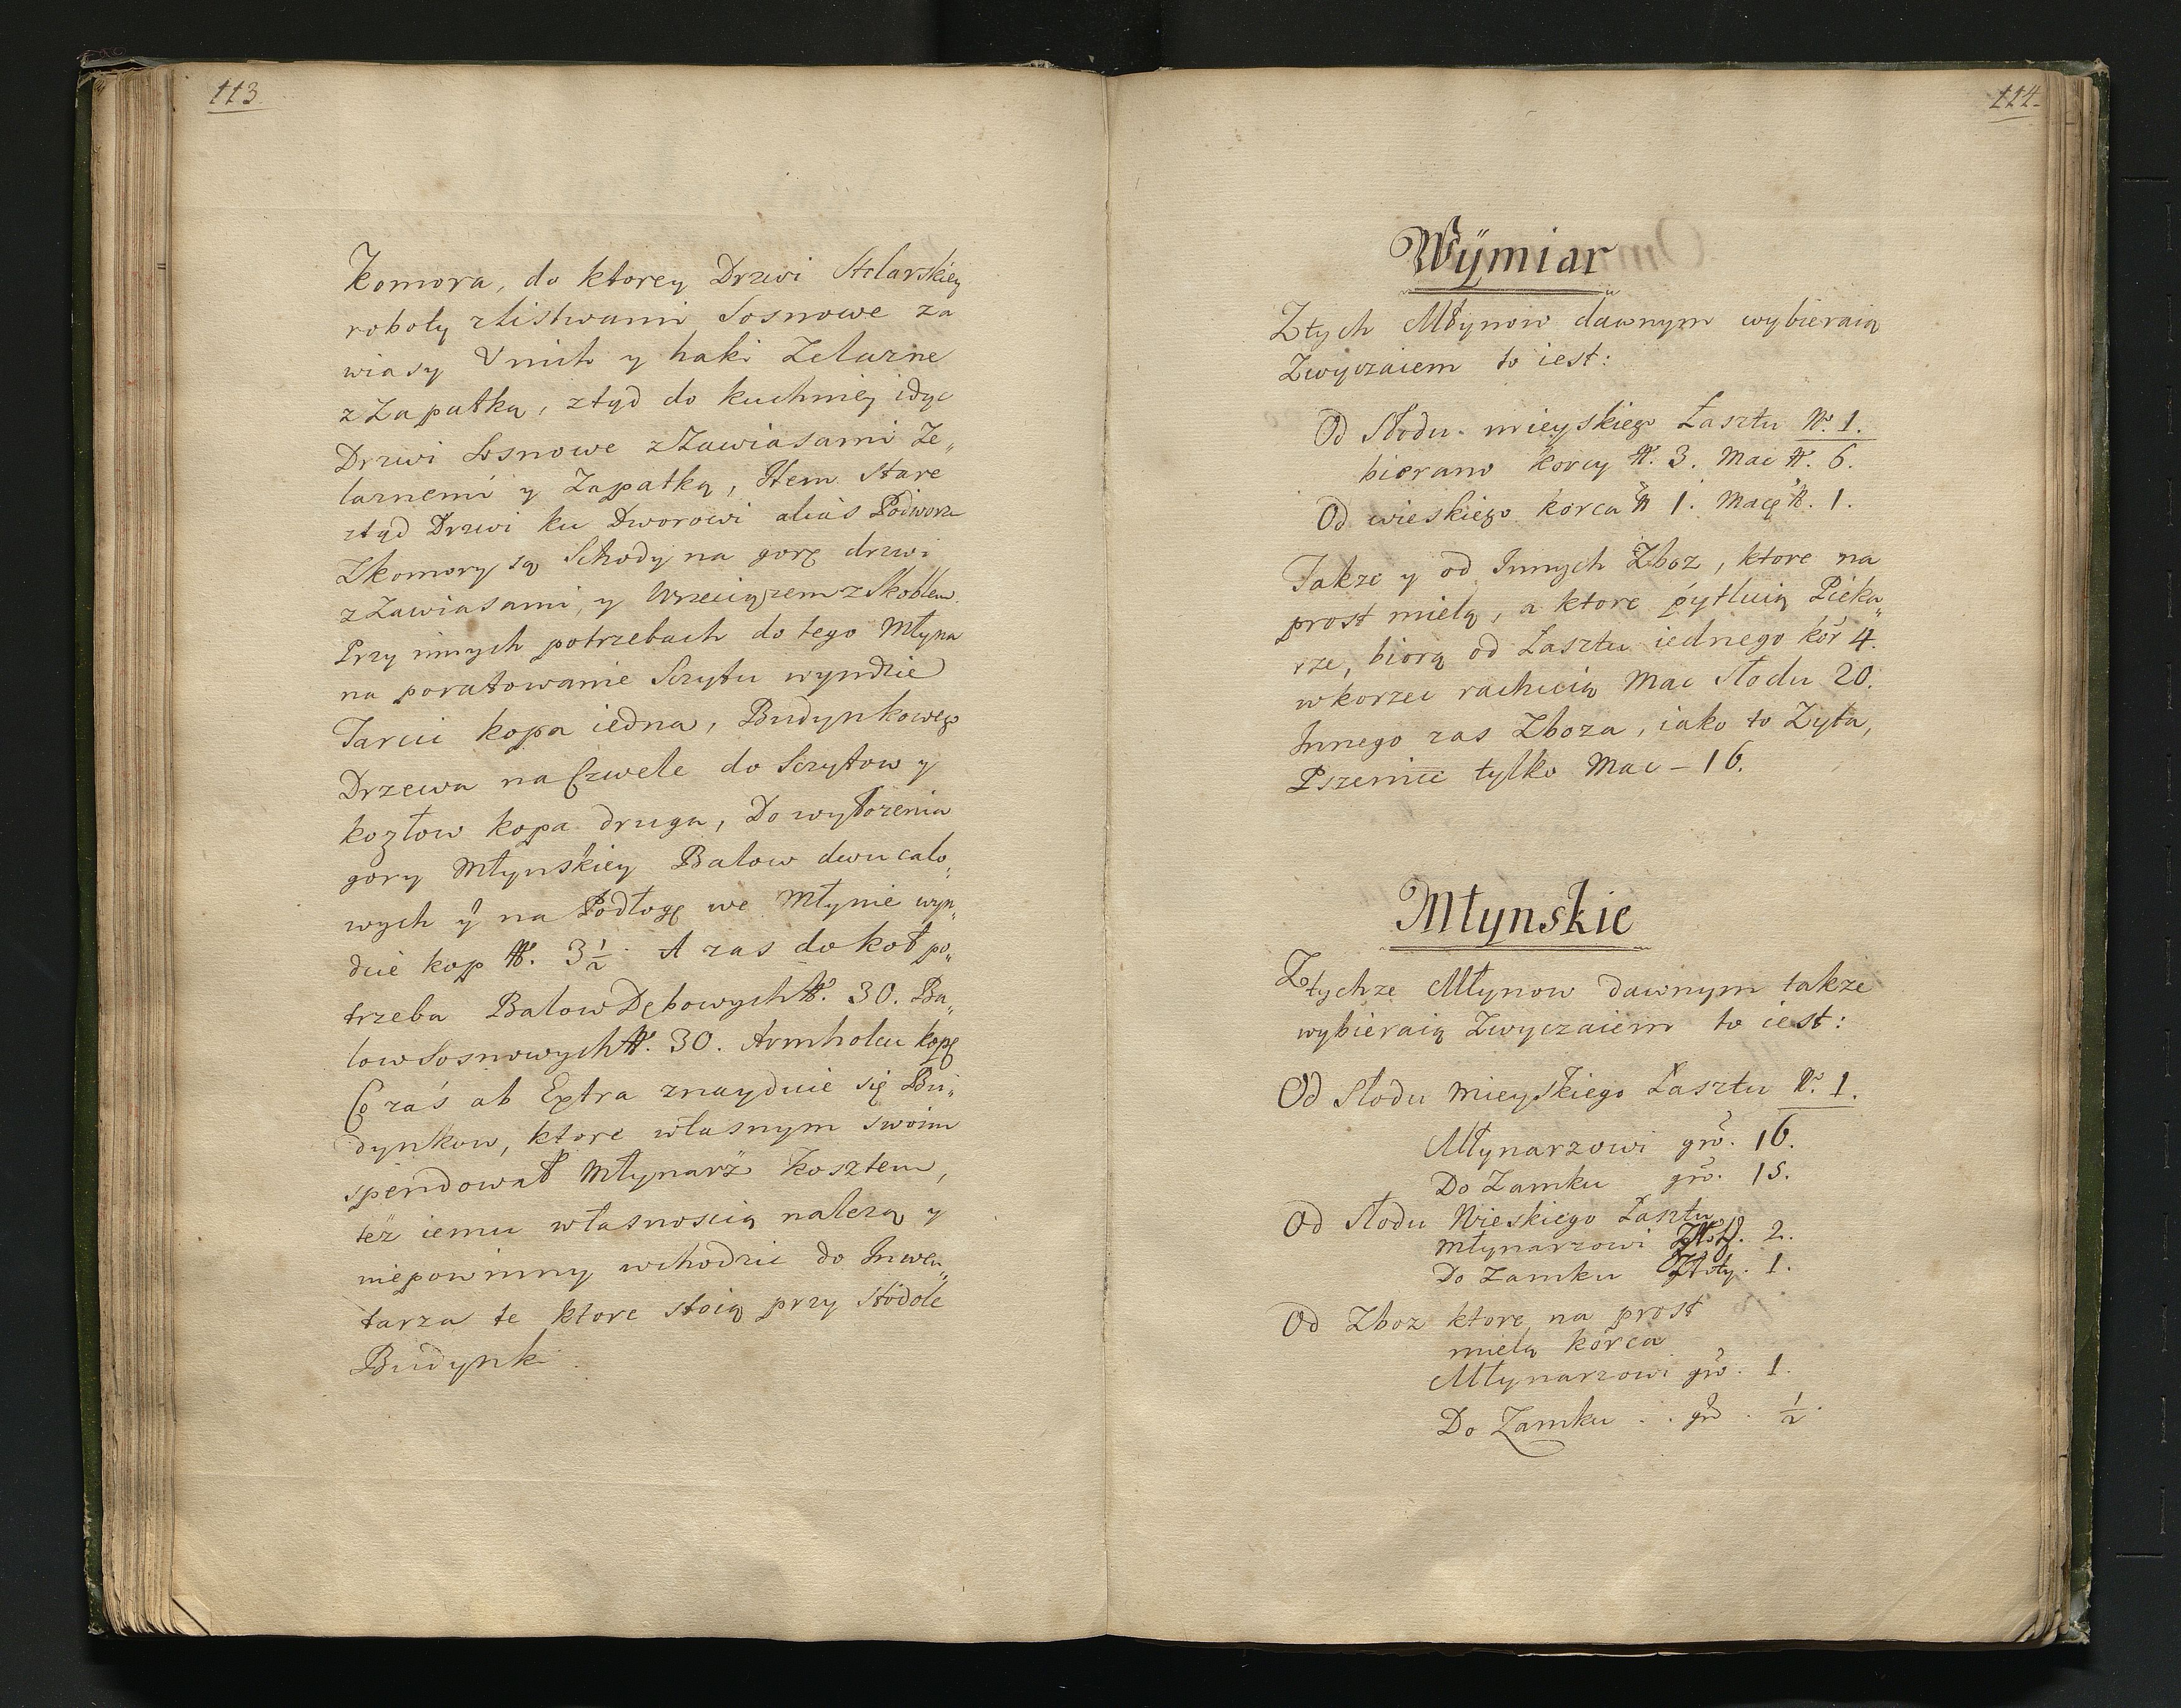 113.
Komora, do ktorey Drzwi Stolarskiey
roboty zlistwami Sosnowe za
wiasy Unich y haki Zelazne
z Zapatką, ztąd do kuchniey idąc
Drzwi Sosnowe z Zawiasami Ze„
laznemi y Zapatką, Item stare
ztąd Drzwi ku Dworowi alias
Zkomory są Schody na gorę drzwi
z Zawiasami, y Wrzeciązem z Skoblem.
Przy innych potrzebach do tego Młyna
na poratowanie Sczytu wyndzie
Tarcic kopa iedna, Budynkowego
Drzewa na Szwele do Sczytow y
kozłow kopa druga, Do wyłozenia
gory Młynskiey Balow dwucalo„
wych ÿ na Podłogę we Młynie wyn„
dzie kop N. 3½. A zas do koł po„
trzeba Balow Dębowych N. 30. Ba„
low Sosnowych N. 30. Armholcu kopę
Co zaś ab Extra znayduie się Bu„
dynkow, ktore własnym swoim
spendował Młynarz kosztem,
też iemu własnoscią nalezą y
niepowinny wchodzic do Inwen„
tarza te ktore stoią przy Stodole
Budynki.
114.
Wÿmiar
Ztych Młynow dawnym wybieraią
Zwyczaiem to iest:
Od Słodu mieyskiego Łasztu No. 1.
bierano korcy N. 3. Mac N. 6.
Od wieskiego korca N 1. Macę N. 1.
Takze y od Innych Zboz, ktore na
prost mielą, a ktore pytluią Pieka„
rze, biorą od Łasztu iednego kor 4.
wkorzec rachuią Mac Słodu 20.
Innego zas Zboza, iako to Zyta,
Pszenice tylko Mac – 16.
Młynskie
Ztychze Młynow dawnym takze
wybieraią Zwyczaiem to iest:
Od Słodu Mieyskiego Łasztu N. 1.
Młynarzowi gro. 16.
Do Zamku gro. 15.
Od Słodu Wieskiego Łasztu
Młynarzowi Złot. 2.
Do Zamku Złoty. 1.
Od Zboz ktore na prost
mielą korca
Młynarzowi gro. 1.
Do Zamku . . gro . ½.